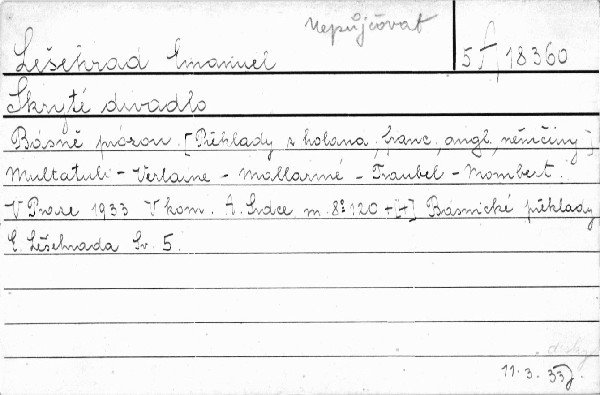 Nepůjčovat
Lešehrad Emanuel
5 f 18360
Skryté divadlo
Básně prózou. [Překlady z holand, franc., angl., němčiny].
Multatuli - Verlaine - Mallarmé - Traubel - Mombert.
V Praze 1933 V kom. A. Srdce m. 8° 120 + [+] Básnické překlady
E. Lešehrada Sv. 5.
desky
11. 3. 35